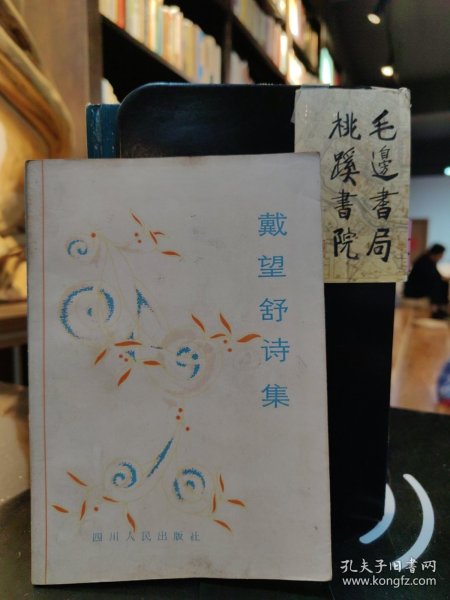 戴望舒诗集
四川人民出版社
毛邊書局
桃蹊書院
孔夫子旧书网
www.kongfz.com